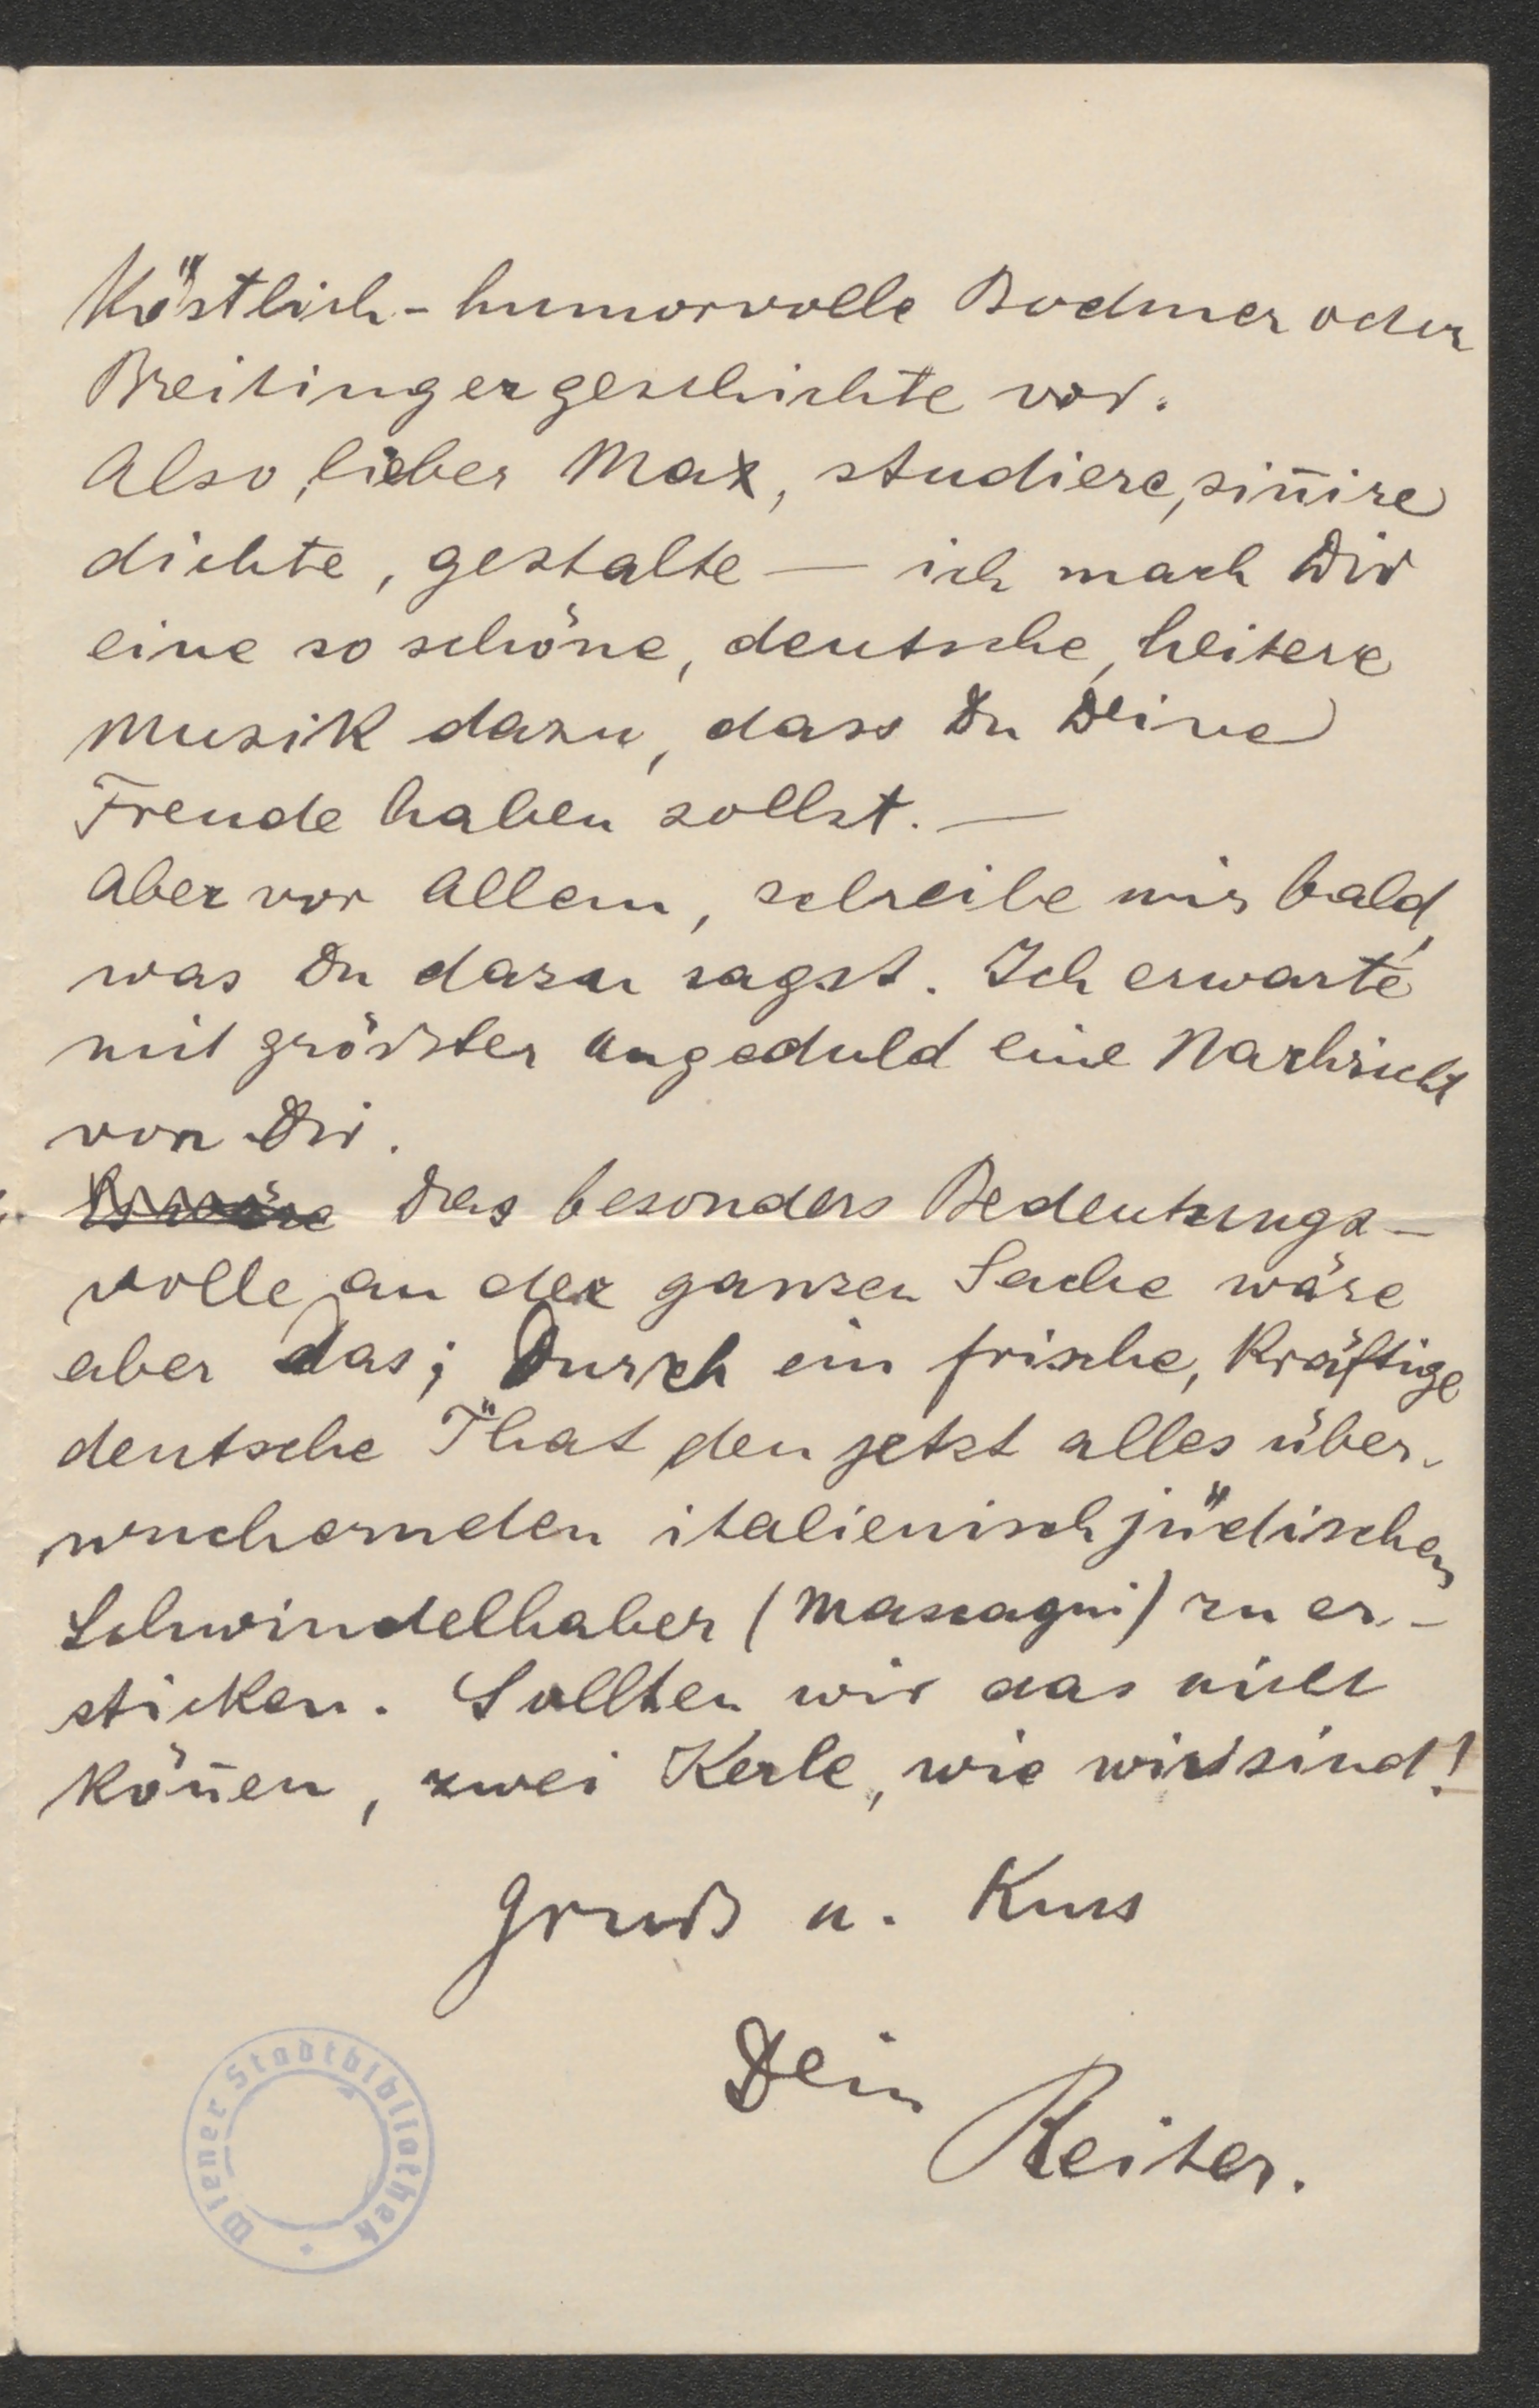 Köstlich-humorvolle Bodmer oder
Breitingergeschichte vor.
Also, lieber Max, studiere, sin̄ire
dichte, gestalte — ich mach Dir
eine so schöne, deutsche, heitere
Musik dazu, dass Du Deine
Freude haben sollst. —
Aber vor Allem, schreibe mir bald,
was Du dazu sagst. Ich erwarte
mit größter Ungeduld eine Nachricht
von Dir.
Es wäre Das besonders Bedeutungs-
volle an der ganzen Sache wäre
aber das; Durch ein frische, kräftige
deutsche That den jetzt alles über-
wuchernden italienisch jüdischen
Schwindelhaber (Mascagni) zu er-
sticken. Sollten wir das nicht
kön̄en, zwei Kerle, wie wir sind!
Gruß u. Kuss
Dein
Reiter.
Wiener Stadtbibliothek